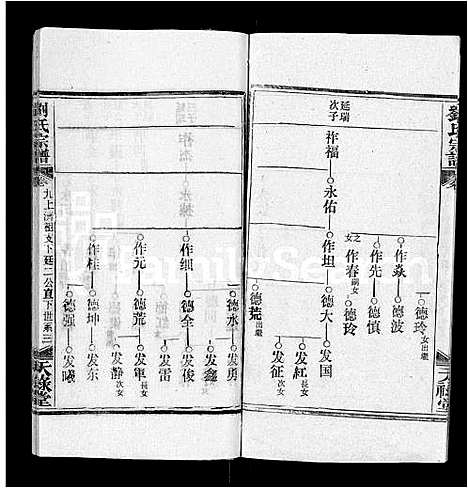 劉氏宗譜
延瑞
次子
祚福
永佑
作坦
德大
发国
发紅 長女
发征
德荒 出繼
作春 嗣女
之女
德玲
作先
德慎
作焱
德波
德玲 女出繼
德永
发勇
发鑫
作细
德全
发俊
发雷
作元
德荒
发軍 長女
发静 次女
作桂
德坤
发东
德强
发曦
劉氏宗譜
九上濟祖支下廷二公直下世系
三
天祿堂
FamilySearch